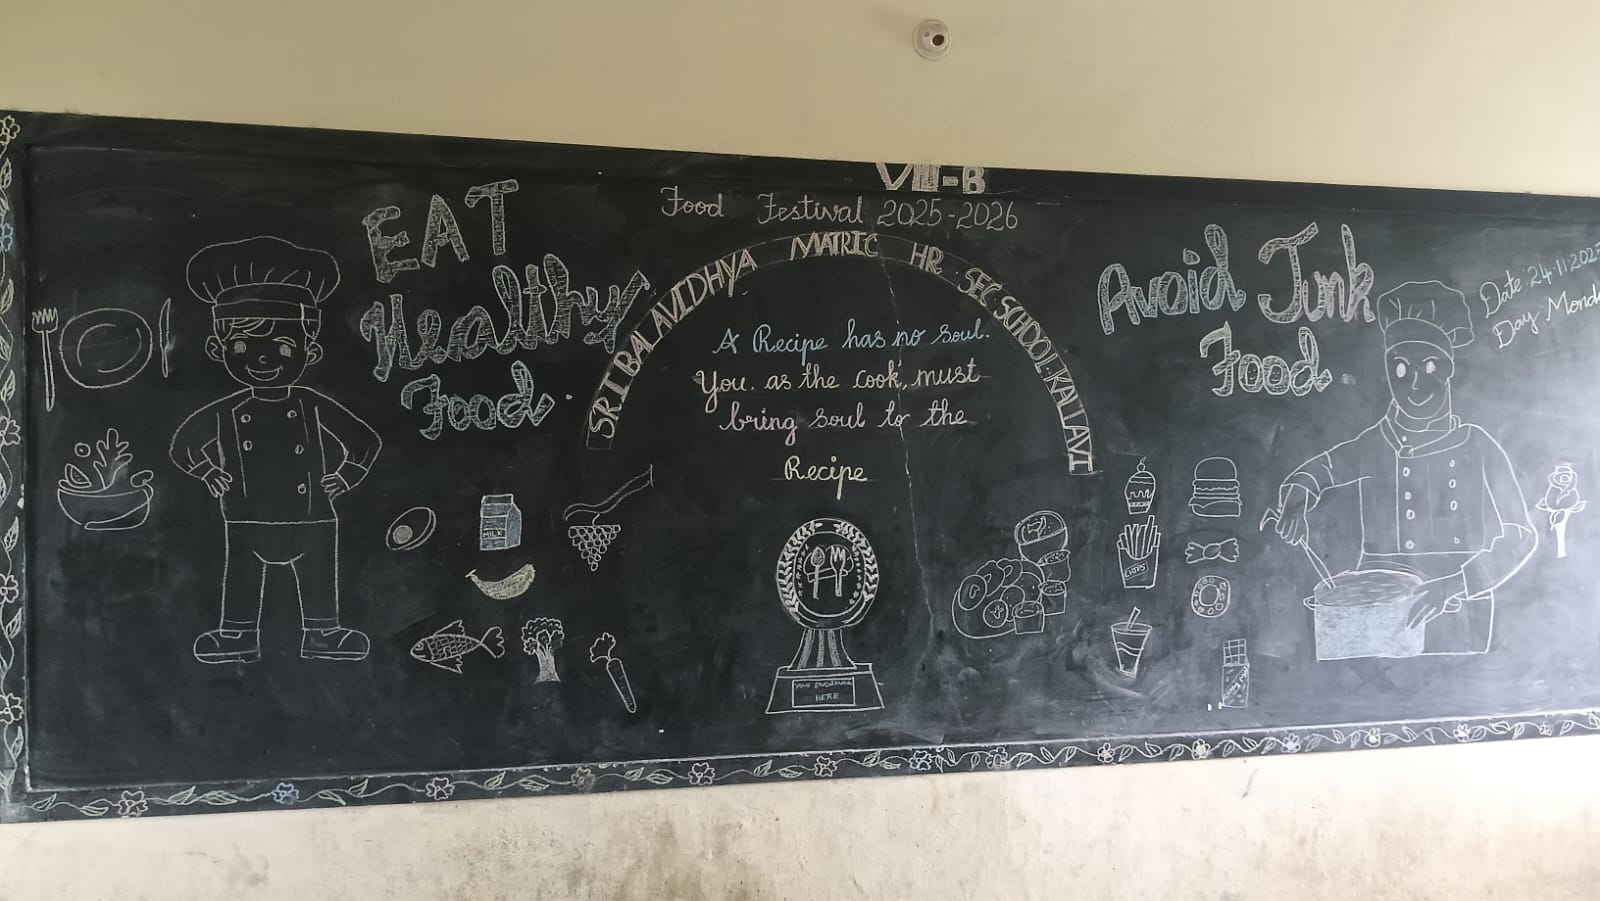 VIII-B
Food Festival 2025-2026
SRI BALAVIDHYA MATRIC HR SEC SCHOOL KALLAVI
EAT
Healthy
Food.
A Recipe has no soul.
You. as the cook, must
bring soul to the
Recipe
Avoid Junk
Food.
Date: 24.11.2025
Day: Monda
MILK
CHIPS
HERE